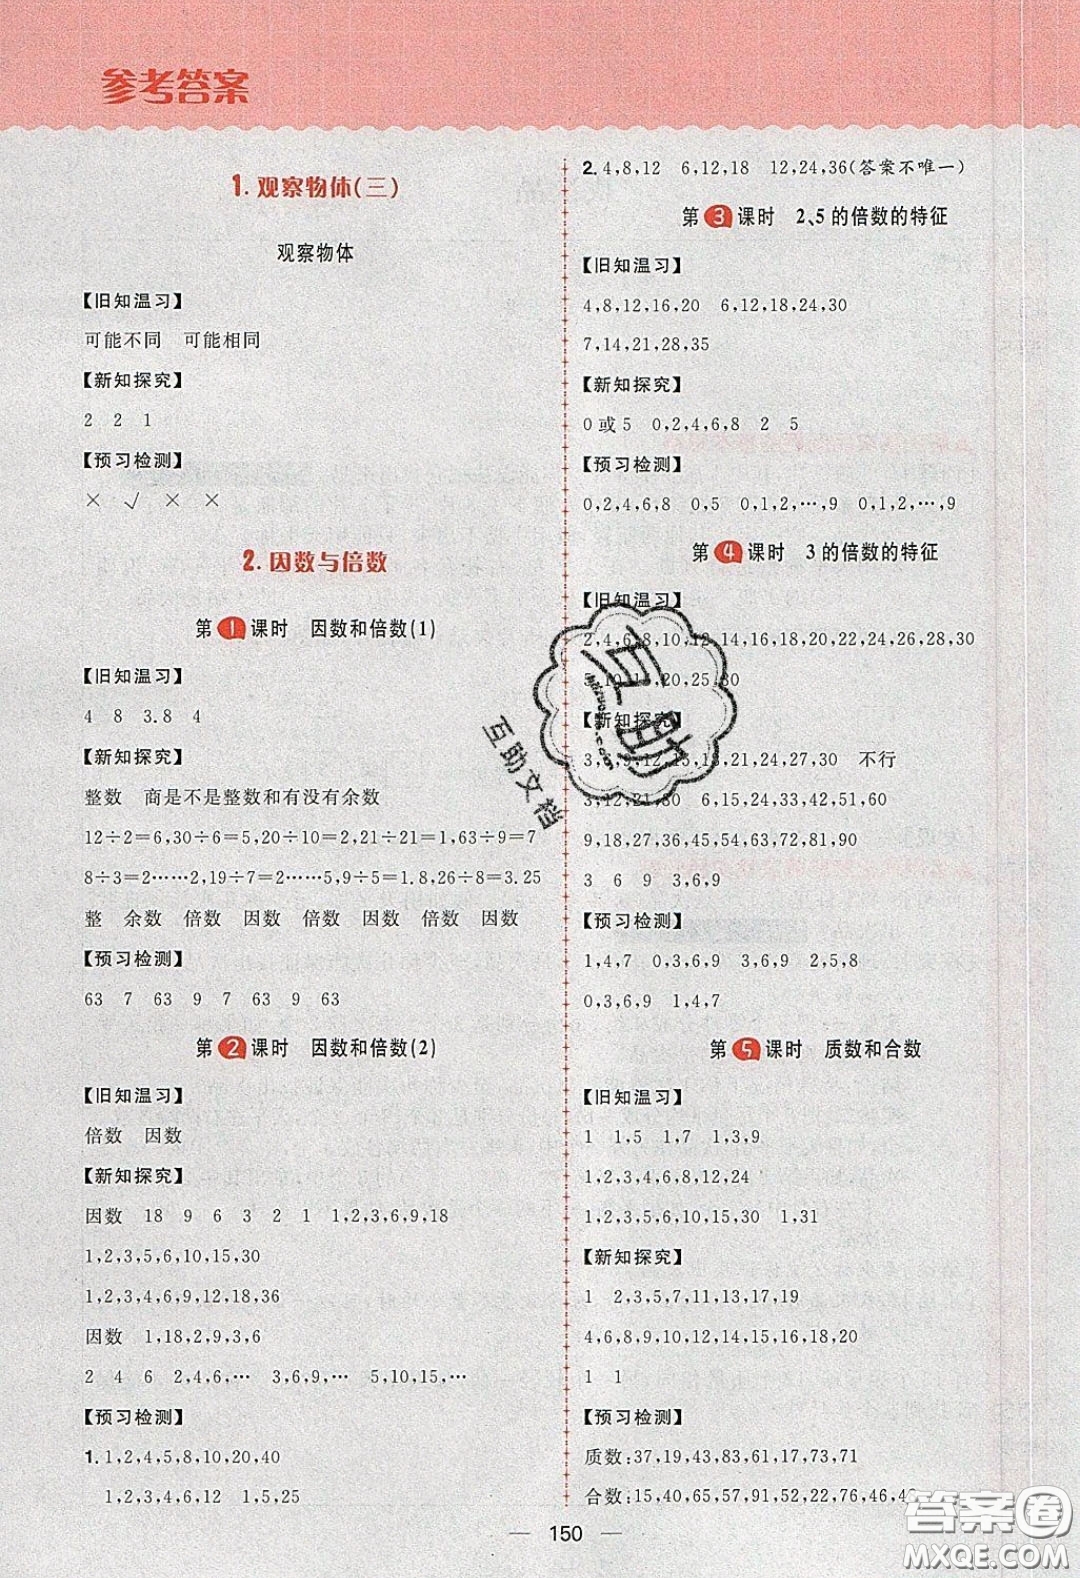 参考答案
1.观察物体(三)
观察物体
【旧知温习】
可能不同 可能相同
【新知探究】
2 2 1
【预习检测】
× √ × ×
2.因数与倍数
第1课时 因数和倍数(1)
【旧知温习】
4 8 3.8 4
【新知探究】
整数 商是不是整数和有没有余数
12÷2=6,30÷6=5,20÷10=2,21÷21=1,63÷9=7
8÷3=2……2,19÷7=2……5,9÷5=1.8,26÷8=3.25
整 余数 倍数 因数 倍数 因数 倍数 因数
【预习检测】
63 7 63 9 7 63 9 63
第2课时 因数和倍数(2)
【旧知温习】
倍数 因数
【新知探究】
因数 18 9 6 3 2 1 1,2,3,6,9,18
1,2,3,5,6,10,15,30
1,2,3,4,6,9,12,18,36
因数 1,18,2,9,3,6
2 4 6 2,4,6,… 3,6,9,… 5,10,15,…
【预习检测】
1.1,2,4,5,8,10,20,40
1,2,3,4,6,12 1,5,25
2.4,8,12 6,12,18 12,24,36(答案不唯一)
第3课时 2、5的倍数的特征
【旧知温习】
4,8,12,16,20 6,12,18,24,30
7,14,21,28,35
【新知探究】
0或5 0,2,4,6,8 2 5
【预习检测】
0,2,4,6,8 0,5 0,1,2,…,9 0,1,2,…,9
第4课时 3的倍数的特征
【旧知温习】
2,4,6,8,10,12,14,16,18,20,22,24,26,28,30
5,10,15,20,25,30
【新知探究】
3,6,9,12,15,18,21,24,27,30 不行
3,12,21,30 6,15,24,42,51,60
9,18,27,36,45,54,72,81,90
3 6 9 3,6,9
【预习检测】
1,4,7 0,3,6,9 3,6,9 2,5,8
0,3,6,9 1,4,7
第5课时 质数和合数
【旧知温习】
1 1,5 1,7 1,3,9
1,2,3,4,6,8,12,24
1,2,3,5,6,10,15,30 1,31
【新知探究】
1 2,3,5,7,11,13,17,19
4,6,8,9,10,12,14,15,16,18,20
1 1
【预习检测】
质数:37,19,43,83,61,17,73,71
合数:15,40,65,57,91,52,22,76,46,49
150
互助
互助文档
答案圈
MXQE.COM